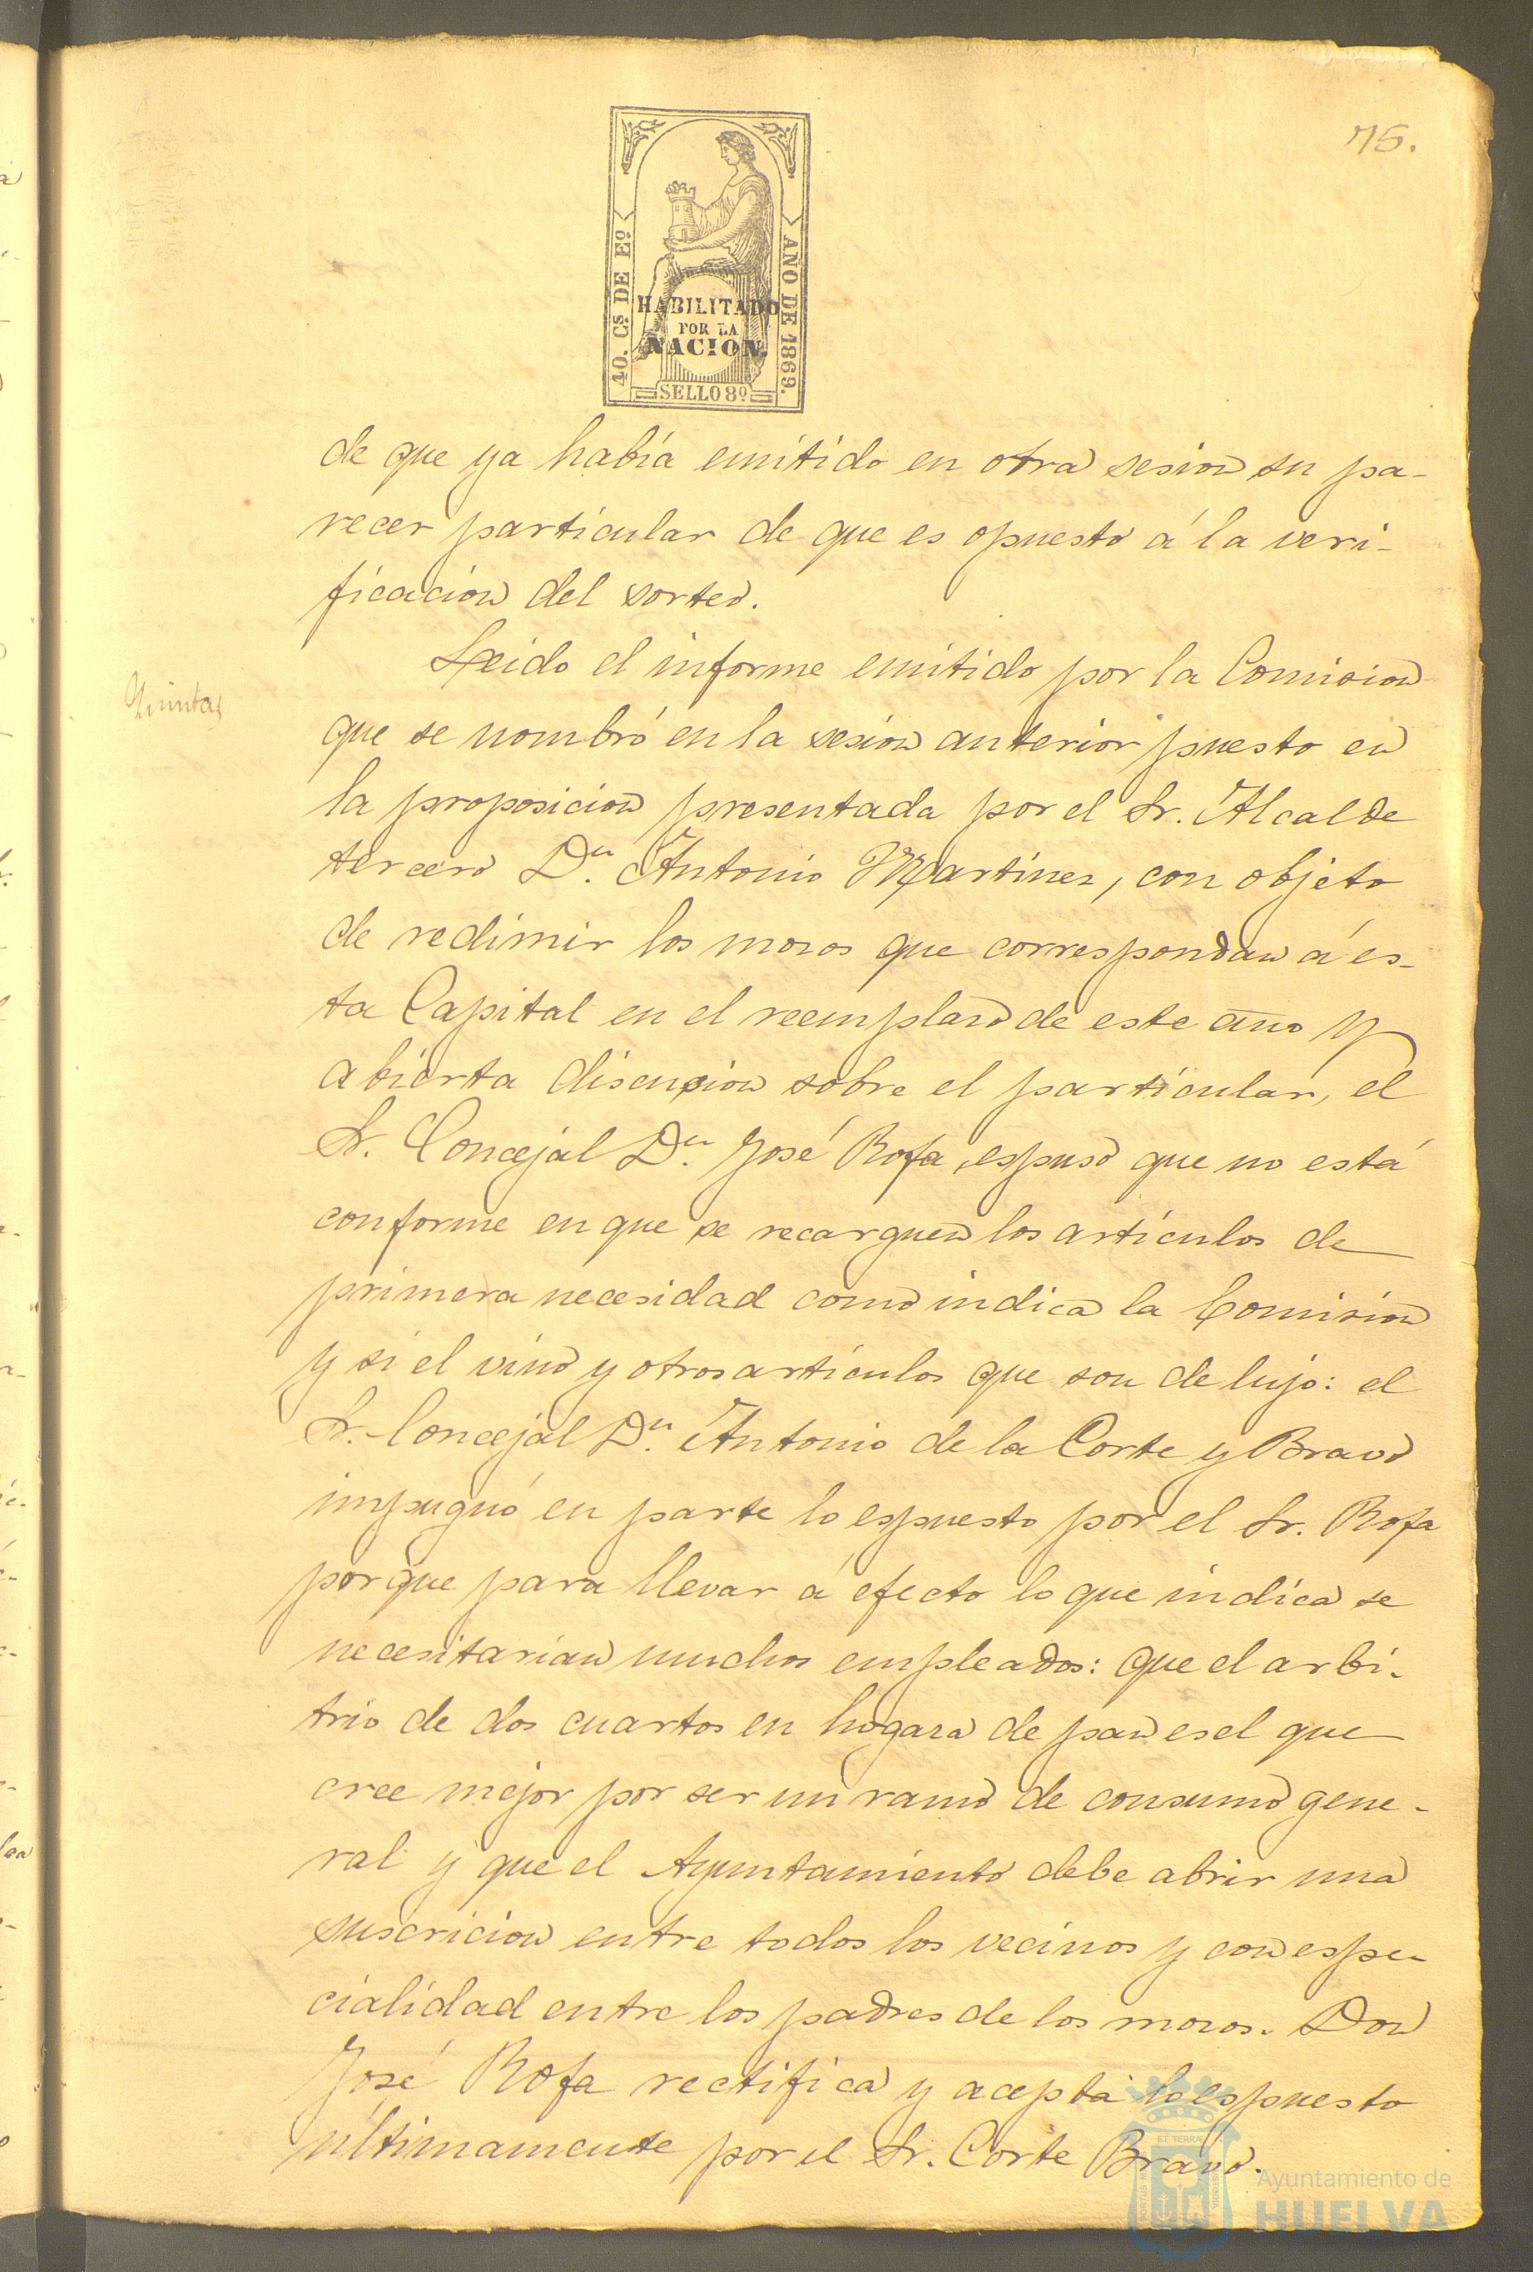 75.
40. Cs. DE Eº
AÑO DE 1869.
HABILITADO
POR LA
NACION.
SELLO 8º
de que ya había emitido en otra sesion su pa-
recer particular de que es opuesto á la veri-
ficacion del sorteo.
Quintas
Leido el informe emitido por la Comision
que se nombró en la sesion anterior puesto en
la proposicion presentada por el Sr. Alcalde
tercero Dn. Antonio Martinez, con objeto
de redimir los mozos que correspondan á es-
ta Capital en el reemplazo de este año y
abierta discusion sobre el particular, el
Sr. Concejal Dn. José Rofa, espuso que no está
conforme en que se recarguen los artículos de
primera necesidad como indica la Comision
y si el vino y otros artículos que son de lujo: el
Sr. Concejal Dn. Antonio de la Corte y Bravo
impugnó en parte lo espuesto por el Sr. Rofa
porque para llevar á efecto lo que indica se
necesitarian muchos empleados: que el arbi-
trio de dos cuartos en hogaza de pan es el que
cree mejor por ser un ramo de consumo gene-
ral y que el Ayuntamiento debe abrir una
suscricion entre todos los vecinos y con espe-
cialidad entre los padres de los mozos. Don
José Rofa rectifica y acepta lo espuesto
últimamente por el Sr. Corte Bravo.
Ayuntamiento de
HUELVA